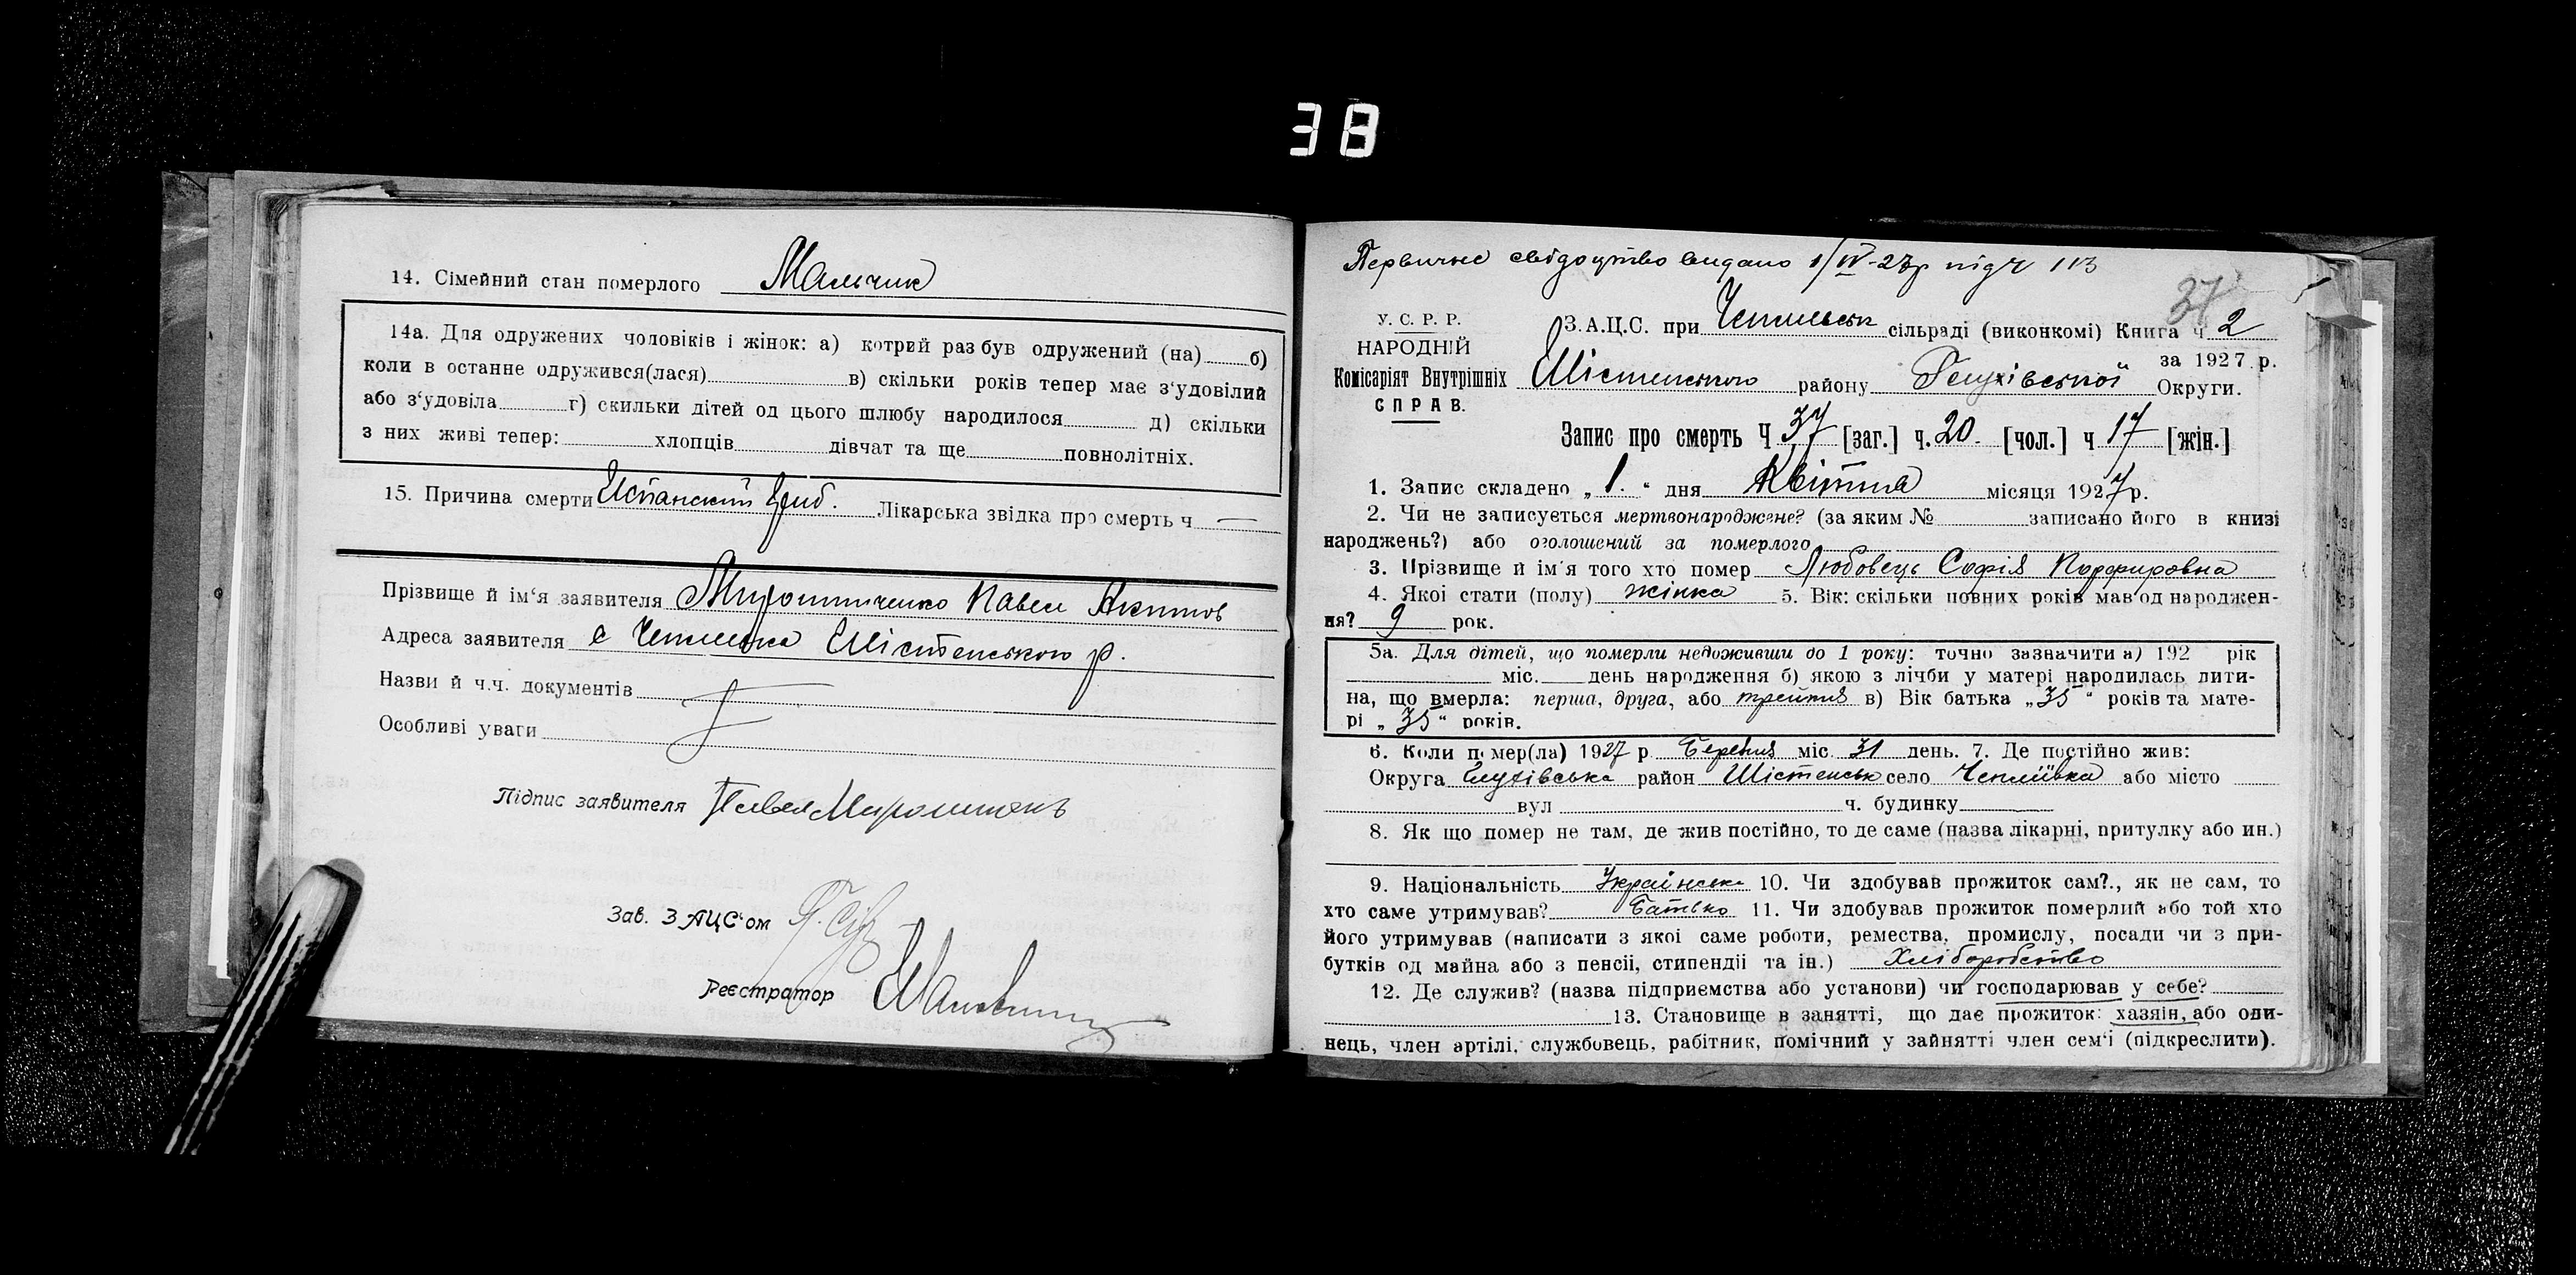 38
14. Сімейний стан померлого Мальчик
14а. Для одружених чоловіків і жінок: а) котрий раз був одружений (на) б)
коли в останне одружився(лася) в) скільки років тепер має з'удовілий
або з'удовіла г) скильки дітей од цього шлюбу народилося д) скільки
з них живі тепер: хлопців дівчат та ще повнолітніх.
15. Причина смерти Испанский грип. Лікарська звідка про смерть ч —
Прізвище й ім'я заявителя Мирошниченко Павел Акимов
Адреса заявителя с Чепліевка Шістенського р.
Назви й ч.ч. документів
Особливі уваги
Підпис заявителя Павел Мирошничен
Зав. ЗАЦС'ом
Реєстратор
Первичне свідоцтво видано 1/IV-27р під Ч 113
37
У. С. Р. Р.
НАРОДНІЙ
Комісаріят Внутрішніх
СПРАВ.
З.А.Ц.С. при сільраді (виконкомі) Книга ч 2
за 1927 р.
Шістенського району Глухівської Округи.
Запис про смерть Ч 37 [заг.] ч. 20. [чол.] ч 17 [жін.]
1. Запис складено „1." дня Квітня місяця 1927 р.
2. Чи не записується мертвонароджене? (за яким № записано його в книзі
народжень?) або оголошений за померлого
3. Прізвище й ім'я того хто помер Любовець Софія Порфировна
4. Якої стати (полу) жінка 5. Вік: скільки повних років мав од народжен-
ня? 9 рок.
5а. Для дітей, що померли недоживши до 1 року: точно зазначити а) 192 рік
міс. день народження б) якою з лічби у матері народилась дити-
на, що вмерла: перша, друга, або третия в) Вік батька „35" років та мате-
рі „35" років.
6. Коли помер(ла) 1927 р. Березня міс. 31 день. 7. Де постійно жив:
Округа Глухівська район Шістенськ село Чепліївка або місто
вул ч. будинку
8. Як що помер не там, де жив постійно, то де саме (назва лікарні, притулку або ин.)
9. Національність Українська 10. Чи здобував прожиток сам?., як не сам, то
хто саме утримував? Батько 11. Чи здобував прожиток померлий або той хто
його утримував (написати з якої саме роботи, ремества, промислу, посади чи з при-
бутків од майна або з пенсії, стипендії та ін.) Хліборобство
12. Де служив? (назва підприємства або установи) чи господарював у себе?
13. Становище в занятті, що дає прожиток: хазяін, або оди-
нець, член артілі, службовець, рабітник, помічний у зайнятті член сем'ї (підкреслити).